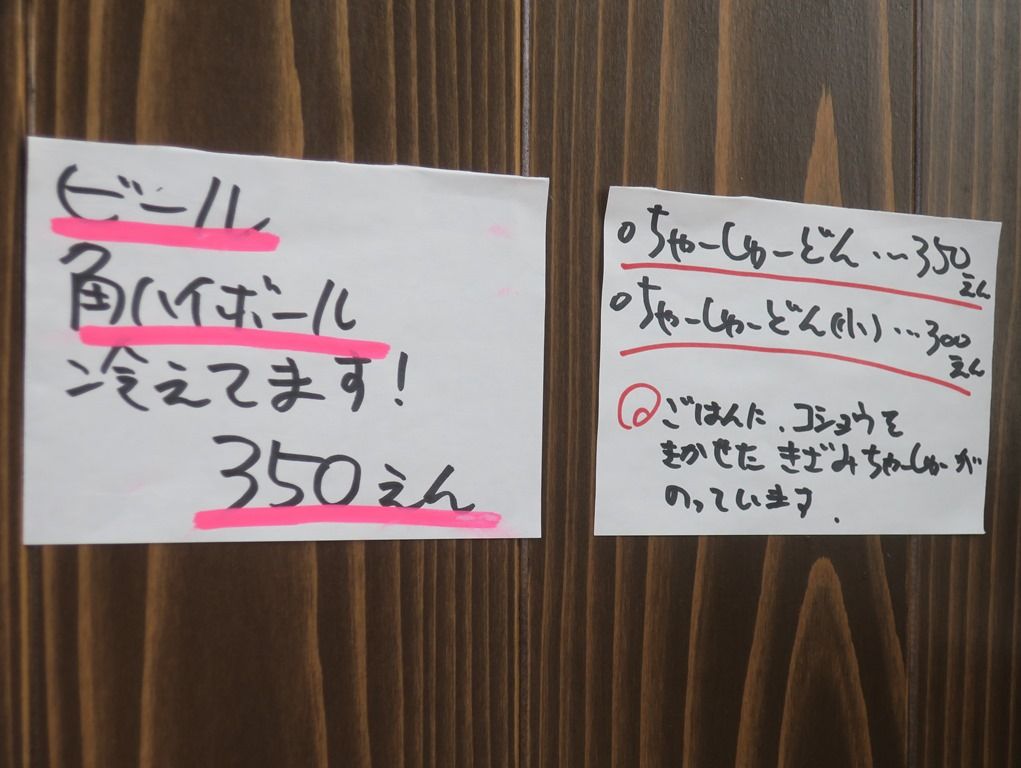 ビール
角ハイボール
冷えてます!
350えん
○ちゃーしゅーどん…350えん
○ちゃーしゅーどん(小)…300えん
ごはんに、コショウを
まかせた きざみちゃーしゅーが
のっています.